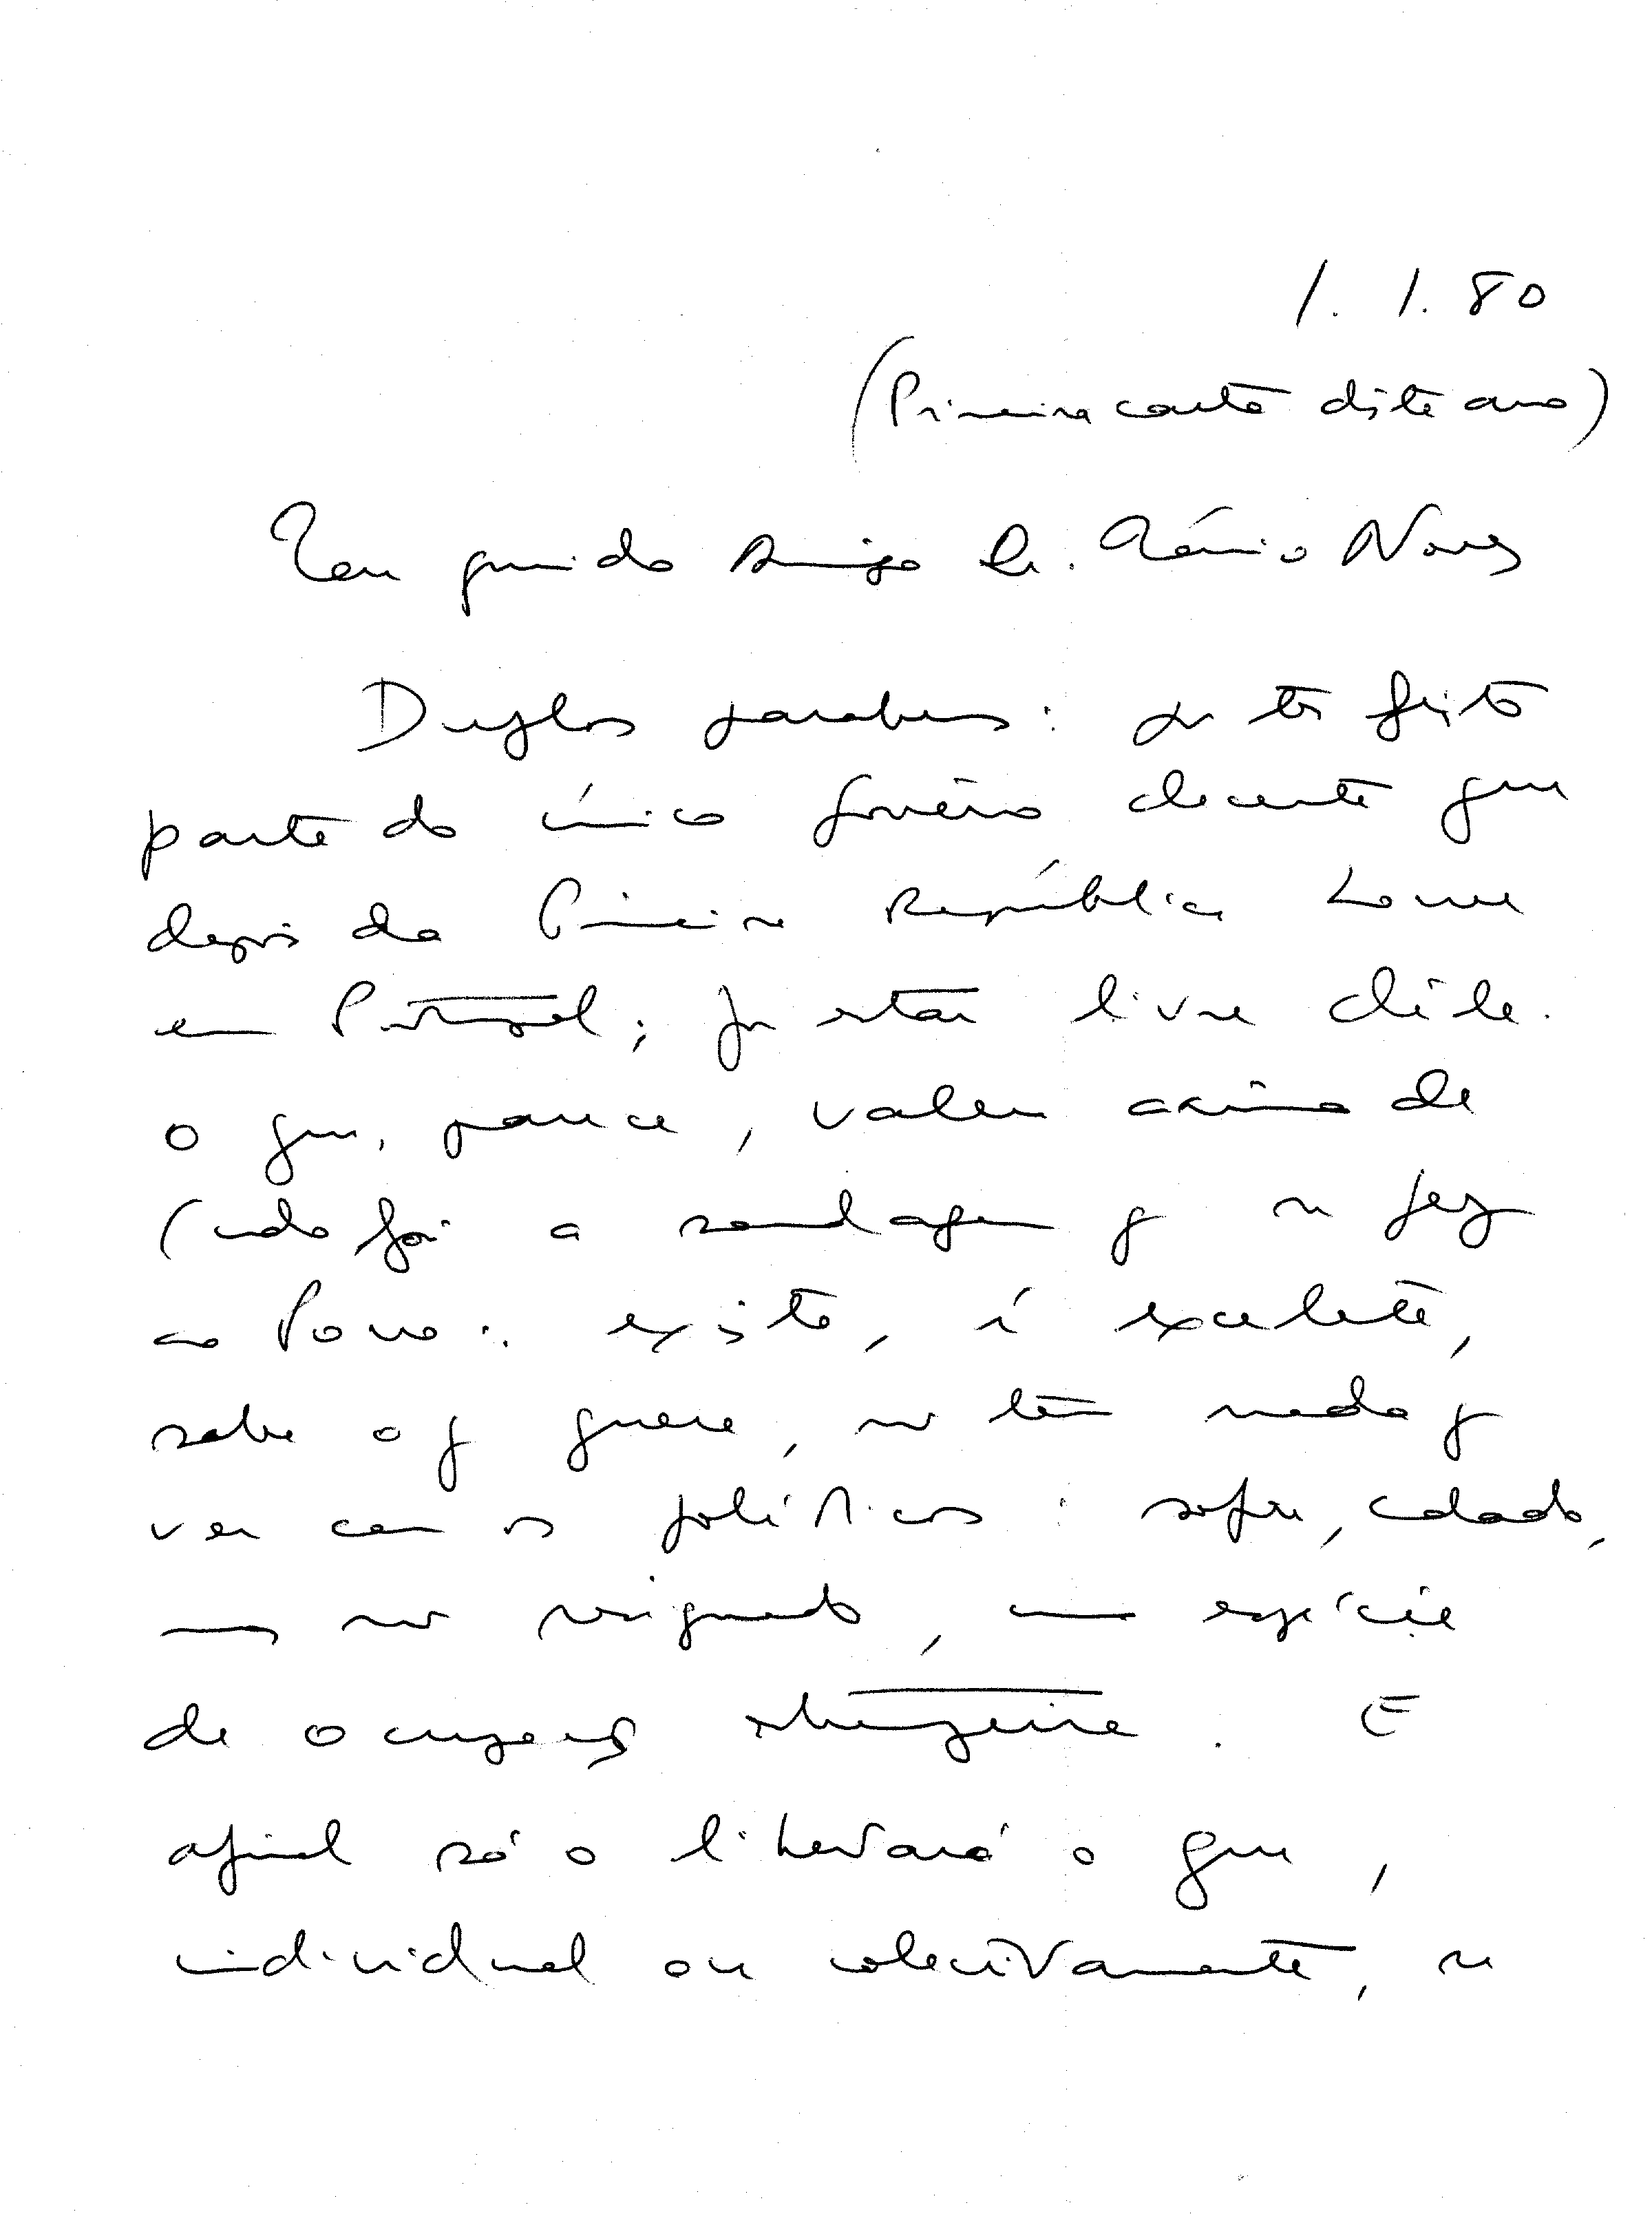 1. 1. 80
(Primeira carta dêste ano)
Meu querido Amigo Dr. Nunes
Duplos parabens: por ter feito
parte do único govêrno decente que
depois da Primeira República houve
em Portugal; por estar livre dêle.
O que, parece, valeu acima de
tudo foi a sondagem q se fez
ao Povo: existe, é excelente,
sabe o q quere, não tem nada q
ver com os políticos: sofre, calado,
mas não resignado, uma espécie
de ocupação estrangeira. E
afinal só o libertará o que,
individual ou colectivamente, se